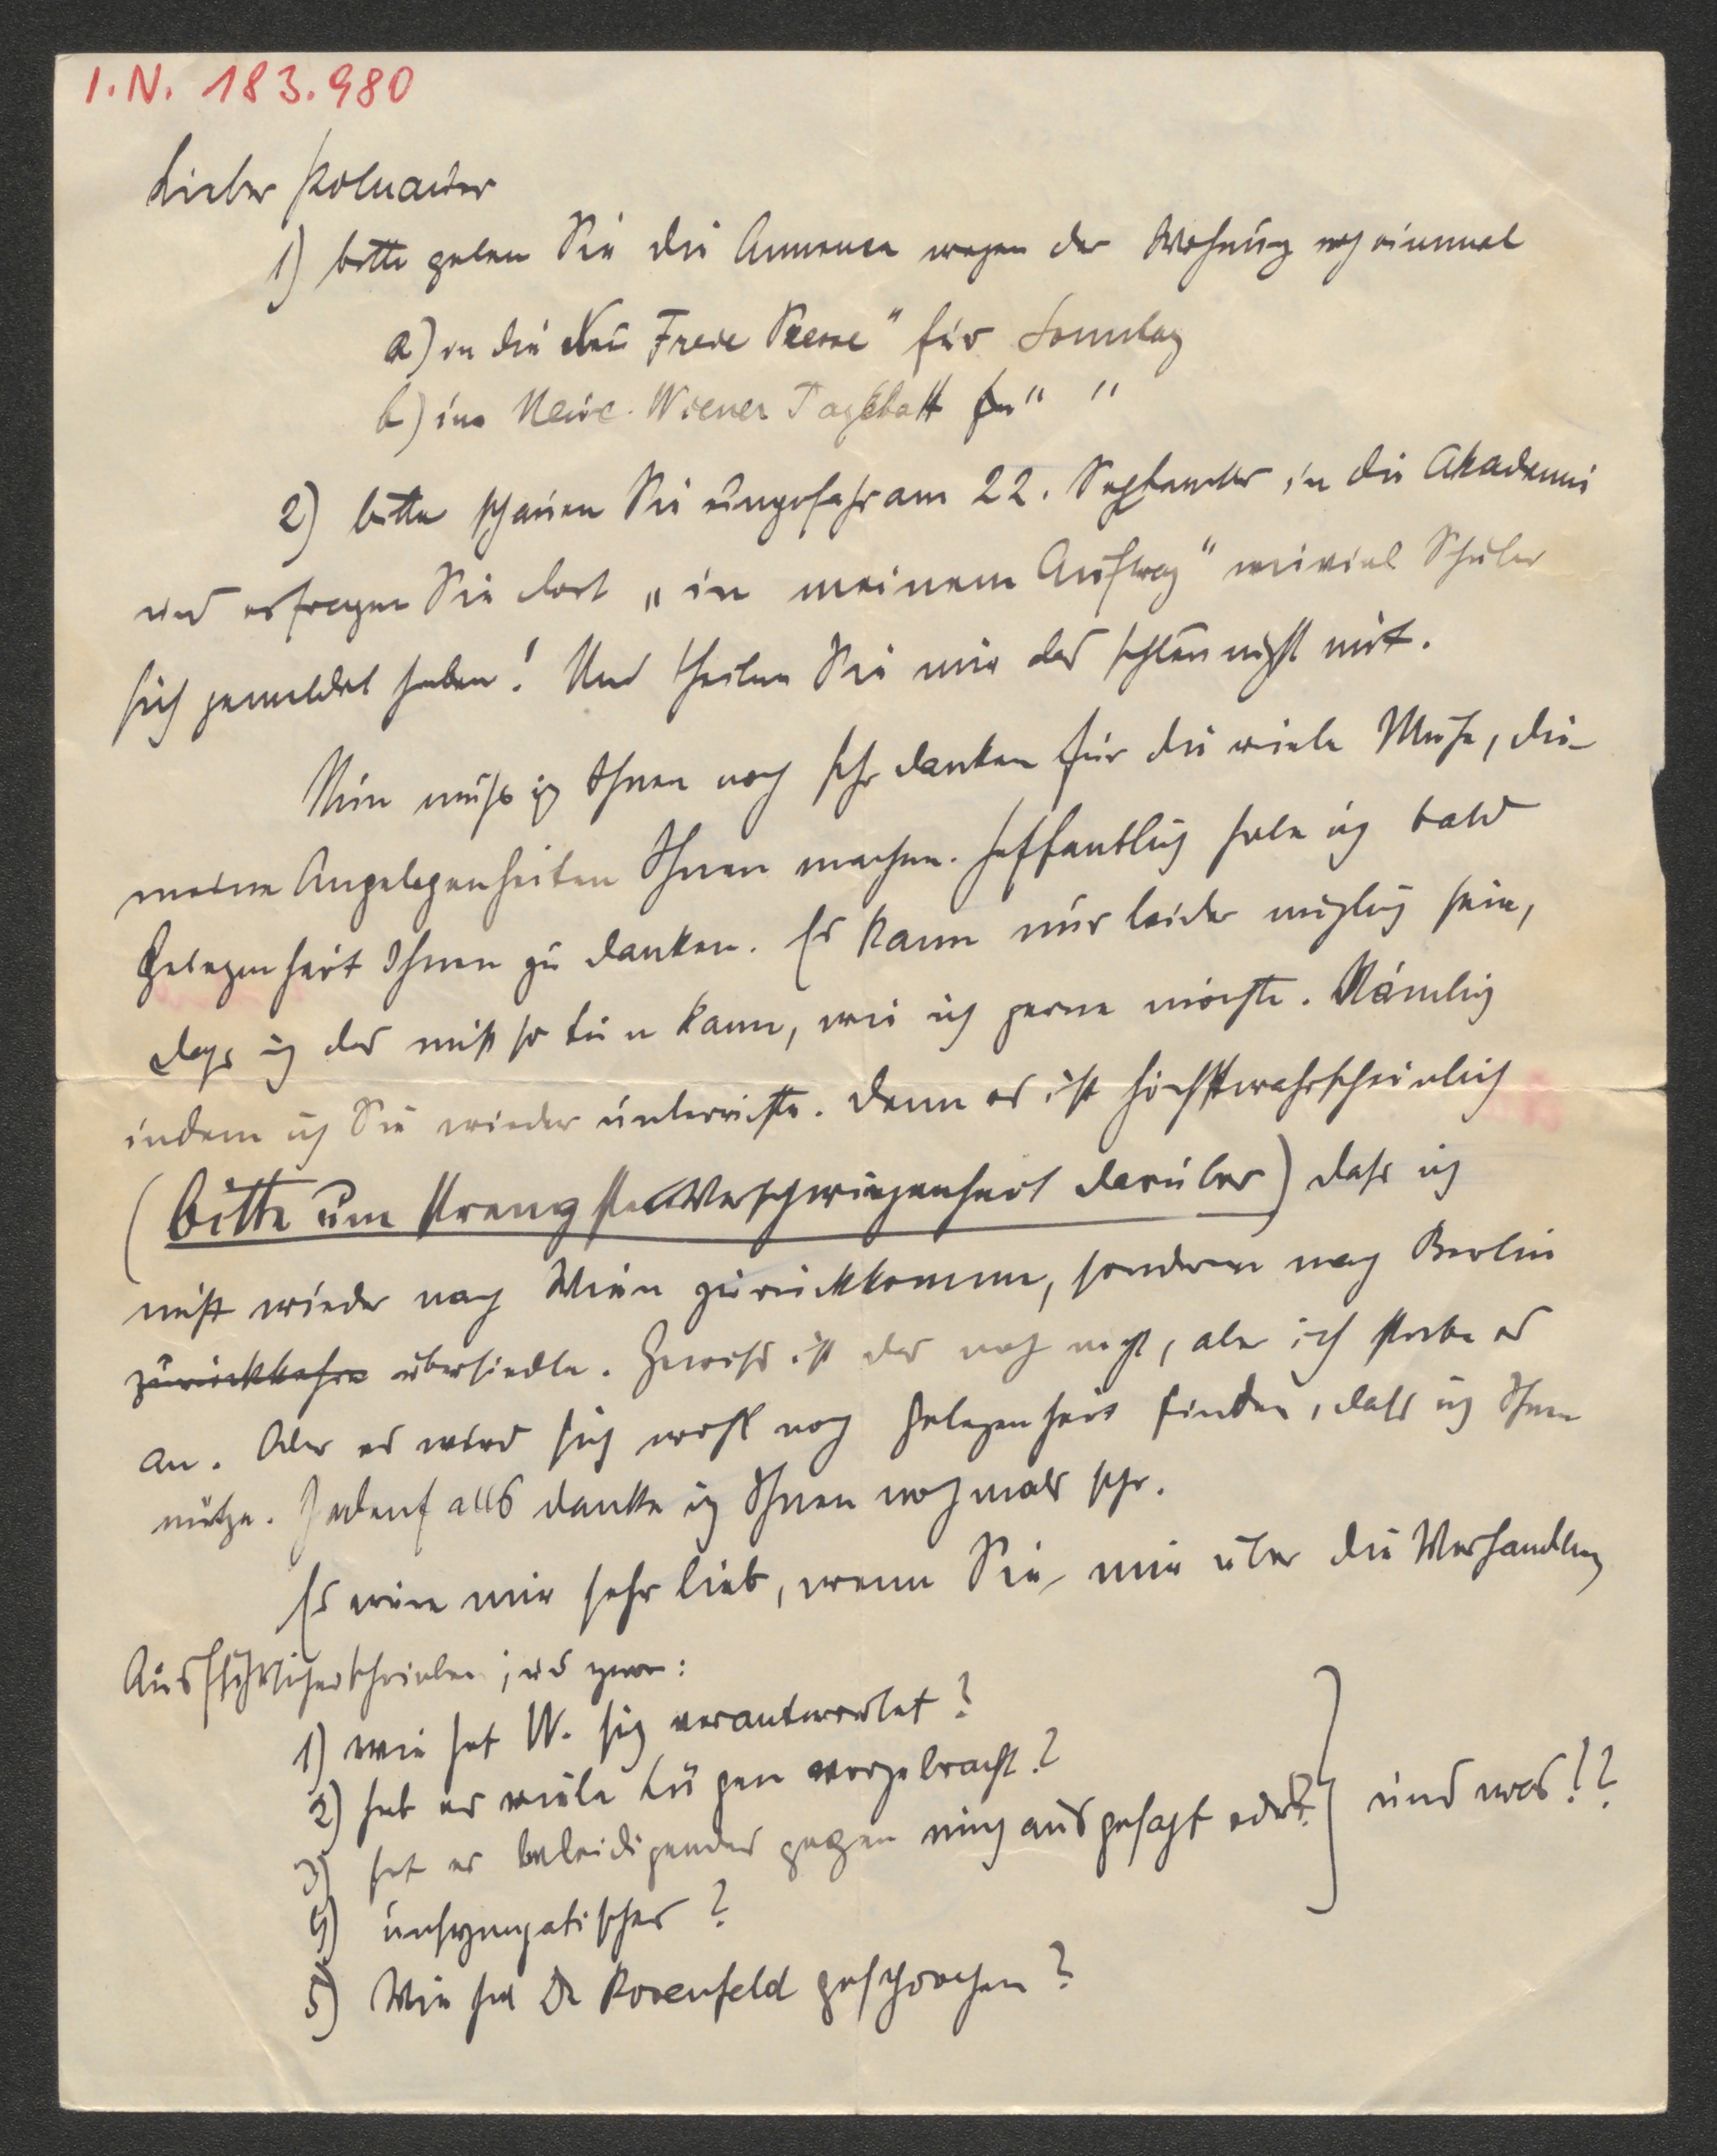 I.N. 183.980
Lieber Polnauer
1) bitte geben Sie die Annonce wegen der Wohnung noch einmal
a) in die „Neue Freie Presse" für Sonntag
b) ins Neue Wiener Tagblatt für " "
2) bitte schauen Sie ungefähr am 22. September in die Akademie
und erfragen Sie dort „in meinem Auftrag" wieviel Schüler
sich gemeldet haben! Und theilen Sie mir das schleunigst mit.
Nun muß ich Ihnen noch sehr danken für die viele Mühe, die
meine Angelegenheiten Ihnen machen. Hoffentlich habe ich bald
Gelegenheit Ihnen zu danken. Es kann nur leider möglich sein,
dass ich das nicht so tun kann, wie ich gerne möchte. Nämlich
indem ich Sie wieder unterrichte. Denn es ist höchstwahrscheinlich
(bitte um strengste Verschwiegenheit darüber) dass ich
nicht wieder nach Wien zurückkomme, sondern nach Berlin
zurückkehre übersiedle. Gewiss ist das noch nicht, aber ich strebe es
an. Aber es wird sich wohl noch Gelegenheit finden, dass ich Ihnen
nütze. Jedenfalls danke ich Ihnen nochmals sehr.
Es wäre mir sehr lieb, wenn Sie mir über die Verhandlung
Ausführlicheres schrieben; und zwar:
1) wie hat W. sich verantwortet?
2) hat er viele Lügen vorgebracht?
3) hat er beleidigendes gegen mich ausgesagt oder? } und was!?
4) unsympatisches?
5) Wie hat Dr Rosenfeld gesprochen?